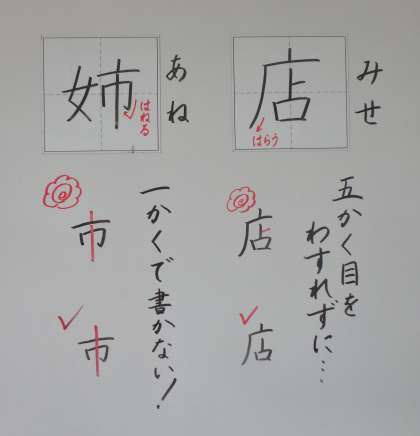 みせ
店
はらう
五かく目を
わすれずに…
店
店
あね
姉
はねる
一かくで書かない！
市
市